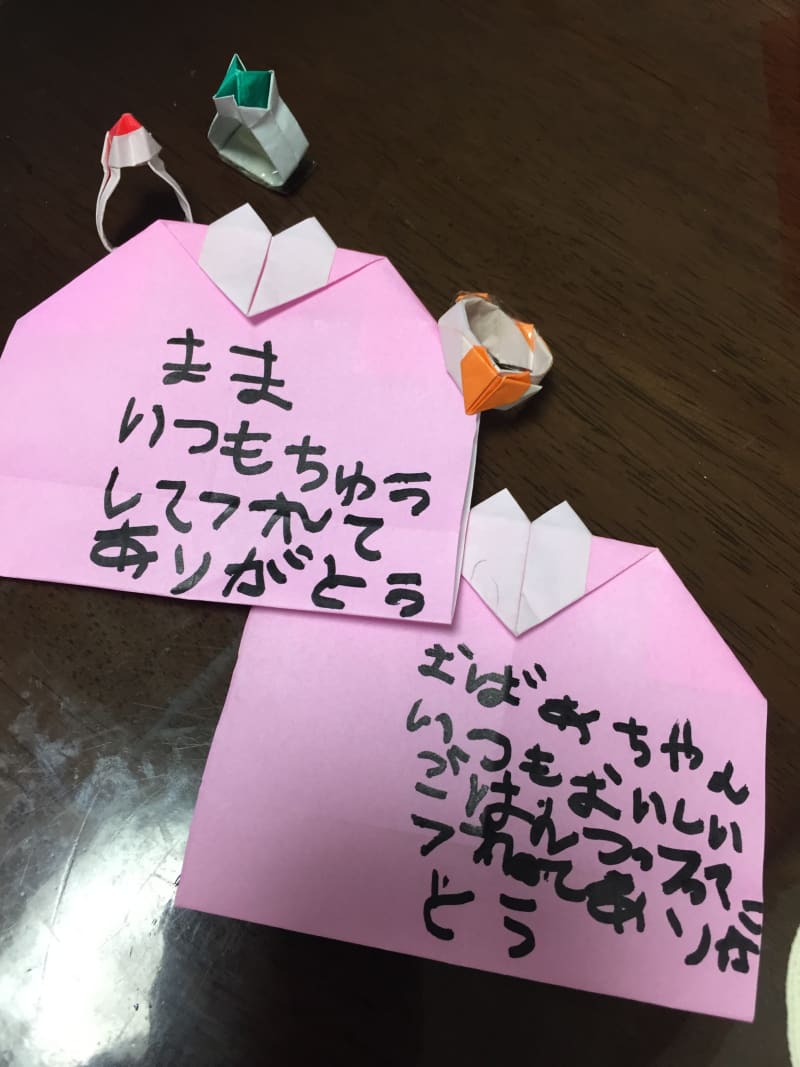 まま
いつもちゅう
してつれて
ありがとう
おばあちゃん
いつもおいしい
ごはんつくって
つれてありが
とう